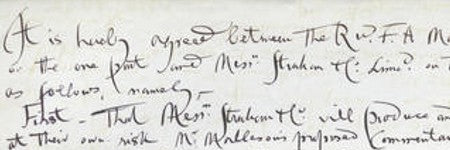 It is hereby agreed between The Rev. F. A. Ma
on the one part and Messrs Strahan & Co. Limd. on
as follows, namely,
First - That Messrs Strahan & Co. will produce an
at Their own risk Mr Mallesons proposed Commentar